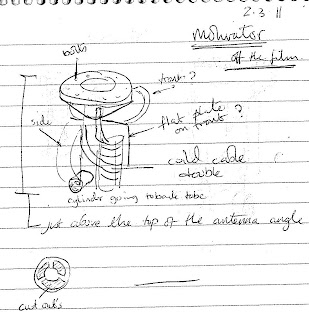 2.3 11
Motivator
off the film
bolts
front?
flat plate
on front ?
side
cold code
double
cylinder going to back tube
just above the top of the antenna angle
cut outs